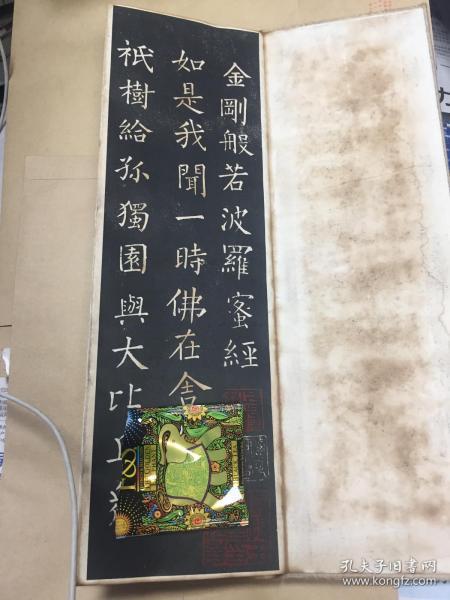 金剛般若波羅蜜經
如是我聞一時佛在舍
祇樹給孤獨園與大比丘
孔夫子旧书网
www.kongfz.com